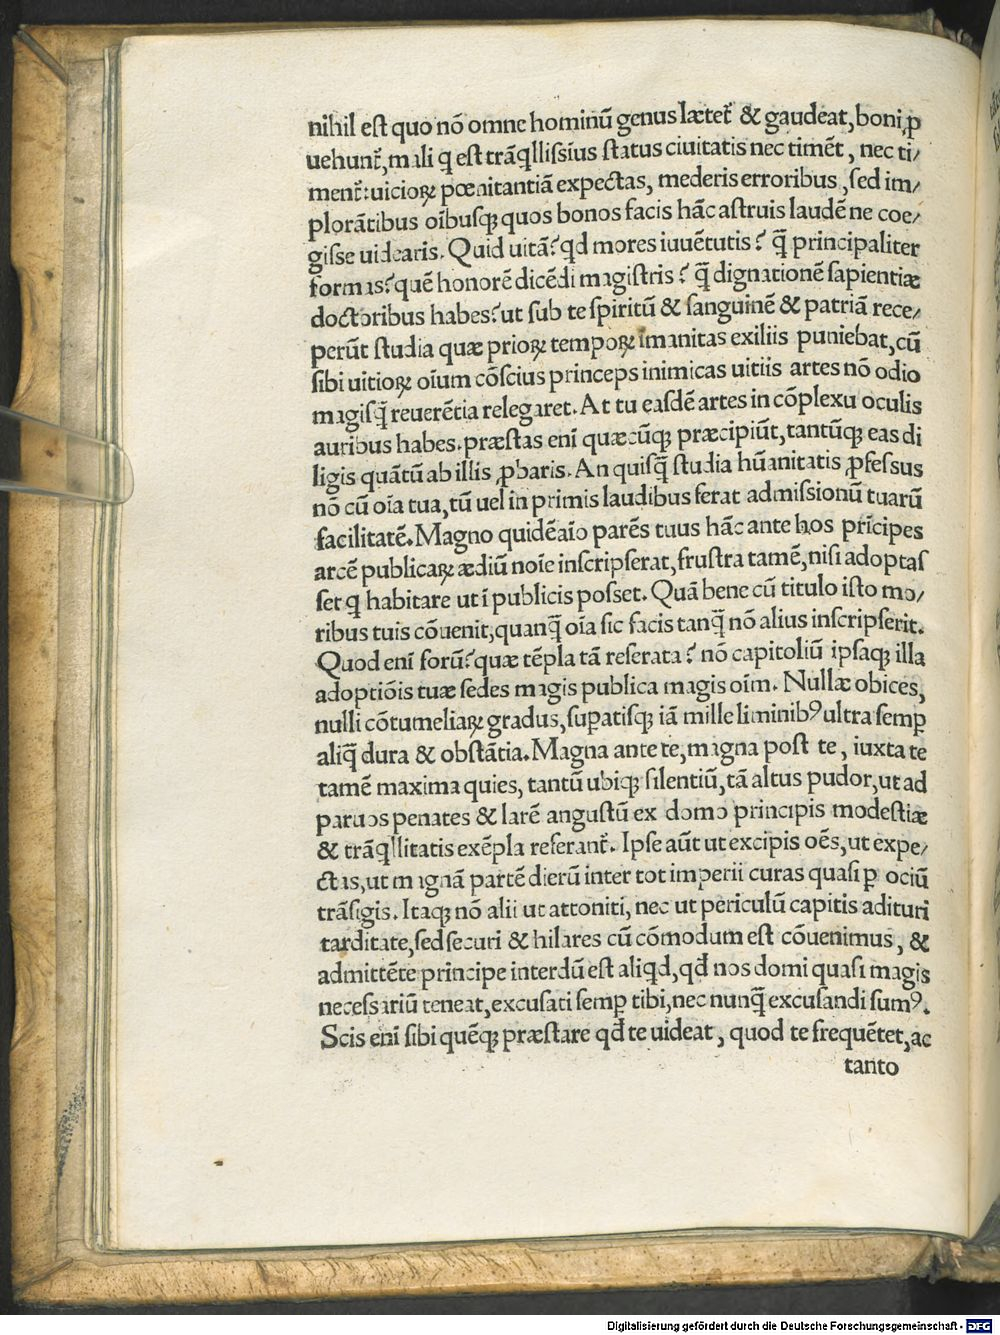 nihil est quo nō omne hominū genus lætet̃ & gaudeat, boni ꝓ
uehunt̃, mali q̨ est trāq̇llissius status ciuitatis nec timēt, nec ti/
ment̃: uicioꝝ pœnitantiā expectas, mederis erroribus, sed im/
plorātibus oībusqꝫ quos bonos facis hāc astruis laudē ne coe/
gisse uidearis. Quid uitā? qd mores iuuētutis? q̄ principaliter
formas? quē honorē dicēdi magistris? q̄ dignationē sapientiæ
doctoribus habes? ut sub te spiritū & sanguinē & patriā rece/
perūt studia quæ prioꝝ tempoꝝ imanitas exiliis puniebat, cū
sibi uitioꝝ oīum cōscius princeps inimicas uitiis artes nō odio
magisq̄ reuerētia relegaret. At tu easdē artes in cōplexu oculis
auribus habes. præstas eni quæcūqꝫ præcipiūt, tantūqꝫ eas di
ligis quātū ab illis ꝓbaris. An quisq̄ studia hūanitatis ꝓfessus
nō cū oīa tua, tū uel in primis laudibus ferat admissionū tuarū
facilitatē. Magno quidē aīo parēs tuus hāc ante hos prīcipes
arcē publicaꝝ ædiū noīe inscripserat, frustra tamē, nisi adoptas
set q̨ habitare ut ī publicis posset. Quā bene cū titulo isto mo/
ribus tuis cōuenit, quanq̄ oīa sic facis tanq̄ nō alius inscripserit.
Quod eni forū? quæ tēpla tā reserata? nō capitoliū ipsaqꝫ illa
adoptiōis tuæ sedes magis publica magis oīm. Nullæ obices,
nulli cōtumeliaꝝ gradus, suꝑatisqꝫ iā mille liminibꝰ ultra semꝑ
aliq̄ dura & obstātia. Magna ante te, magna post te, iuxta te
tamē maxima quies, tantū ubiqꝫ silentiū, tā altus pudor, ut ad
paruos penates & larē angustū ex domo principis modestiæ
& trāq̇llitatis exēpla referant̃. Ipse aūt ut excipis oēs, ut expe/
ctas, ut magnā partē dierū inter tot imperii curas quasi ꝑ ociū
trāsigis. Itaqꝫ nō alii ut attoniti, nec ut periculū capitis adituri
tarditate, sed securi & hilares cū cōmodum est cōuenimus, &
admittēte principe interdū est aliqd, qđ nos domi quasi magis
necessariū teneat, excusati semꝑ tibi, nec nunq̄ excusandi sumꝰ.
Scis eni sibi quēqꝫ præstare qđ te uideat, quod te frequētet, ac
tanto
Digitalisierung gefördert durch die Deutsche Forschungsgemeinschaft - DFG